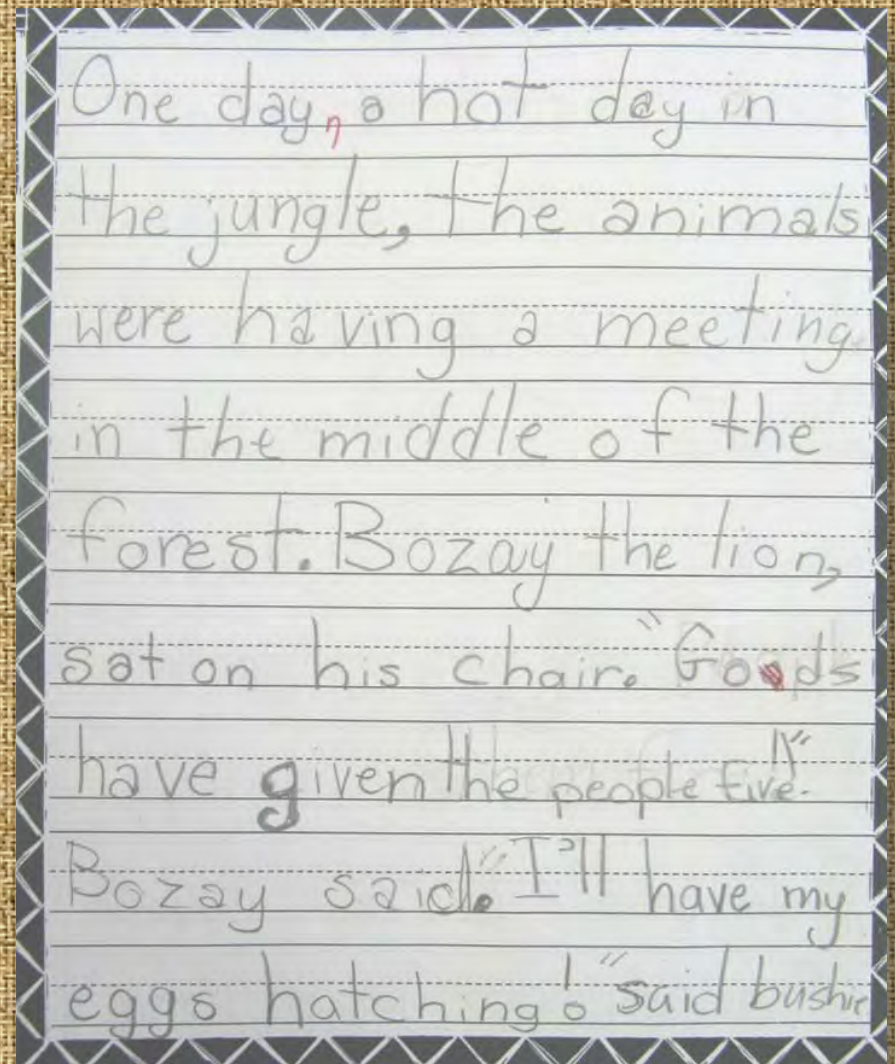 One day, a hot day in
the jungle, the animals
were having a meeting
in the middle of the
forest. Bozay the lion,
sat on his chair. "Gods
have given the people five!"
Bozay said. "I'll have my
eggs hatching!" said bushie